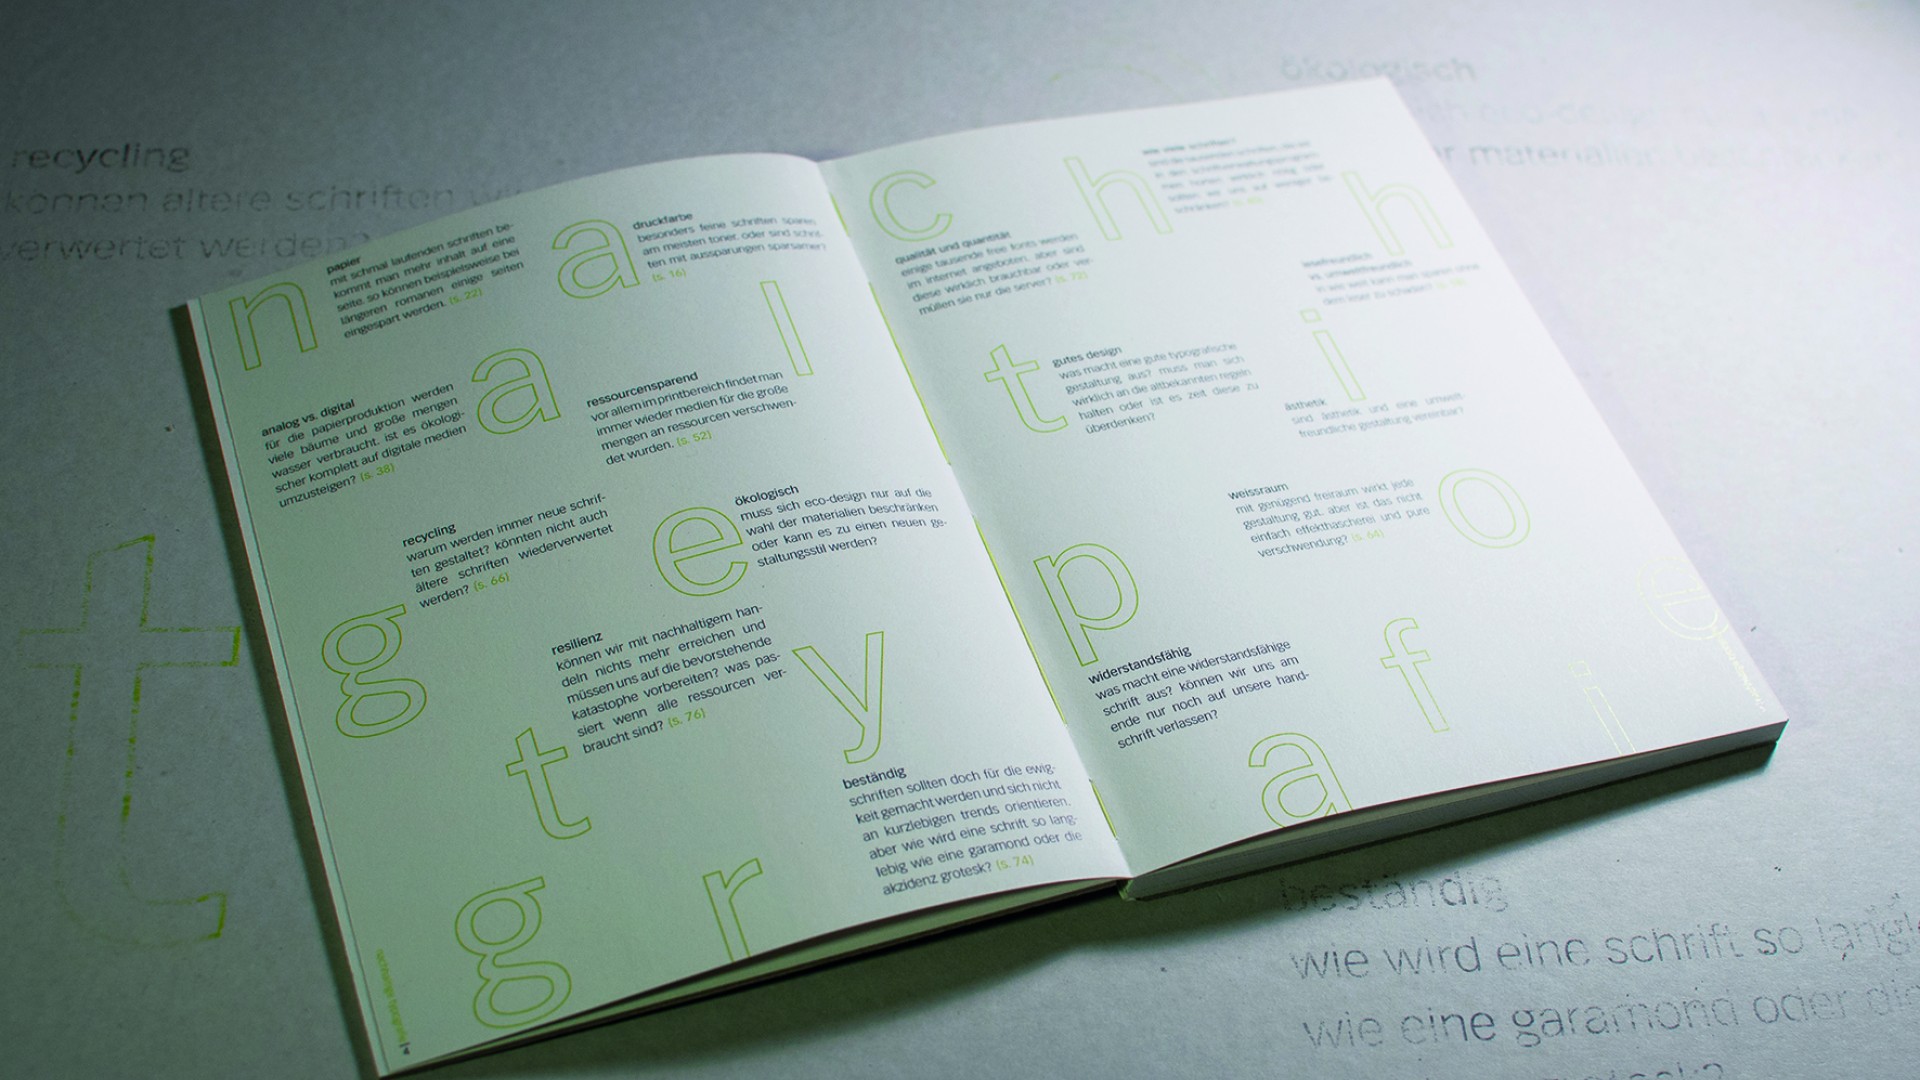 recycling
können ältere schriften
verwertet werden?
ökologisch
n
papier
mit schmal laufenden schriften be-
kommt man mehr inhalt auf eine
seite. so können beispielsweise bei
längeren romanen einige seiten
eingespart werden. (s. 22)
a
druckfarbe
besonders feine schriften sparen
am meisten toner, oder sind schrif-
ten mit aussparungen sparsamer?
(s. 16)
l
analog vs. digital
für die papierproduktion werden
viele bäume und große mengen
wasser verbraucht. ist es ökologi-
scher komplett auf digitale medien
umzusteigen? (s. 38)
a
ressourcensparend
vor allem im printbereich findet man
immer wieder medien für die große
mengen an ressourcen verschwen-
det wurden. (s. 52)
recycling
warum werden immer neue schrif-
ten gestaltet? könnten nicht auch
ältere schriften wiederverwertet
werden? (s. 66)
e
ökologisch
muss sich eco-design nur auf die
wahl der materialien beschränken
oder kann es zu einen neuen ge-
staltungsstil werden?
g
resilienz
können wir mit nachhaltigem han-
deln nichts mehr erreichen und
müssen uns auf die bevorstehende
katastophe vorbereiten? was pas-
siert wenn alle ressourcen ver-
braucht sind? (s. 76)
y
t
beständig
schriften sollten doch für die ewig-
keit gemacht werden und sich nicht
an kurzlebigen trends orientieren.
aber wie wird eine schrift so lang-
lebig wie eine garamond oder die
akzidenz grotesk? (s. 74)
g
r
c
h
wie viele schriften?
h
qualität und quantität
einige tausende free fonts werden
im internet angeboten. aber sind
diese wirklich brauchbar oder ver-
müllen sie nur die server? (s. 72)
lesefreundlich
vs. umweltfreundlich
t
gutes design
was macht eine gute typografische
gestaltung aus? muss man sich
wirklich an die altbekannten regeln
halten oder ist es zeit diese zu
überdenken?
i
ästhetik
sind ästhetik und eine umwelt-
freundliche gestaltung vereinbar?
weissraum
mit genügend freiraum wirkt jede
gestaltung gut. aber ist das nicht
einfach effekthascherei und pure
verschwendung? (s. 64)
o
p
widerstandsfähig
was macht eine widerstandsfähige
schrift aus? können wir uns am
ende nur noch auf unsere hand-
schrift verlassen?
f
e
i
a
t
beständig
wie wird eine schrift so
wie eine garamond oder